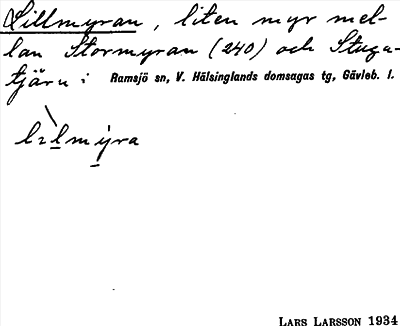 Lillmyran, liten myr mel-
lan Stormyran (240) och Stugu-
tjärn i Ramsjö sn, V. Hälsinglands domsagas tg, Gävleb. l.
LARS LARSSON 1934